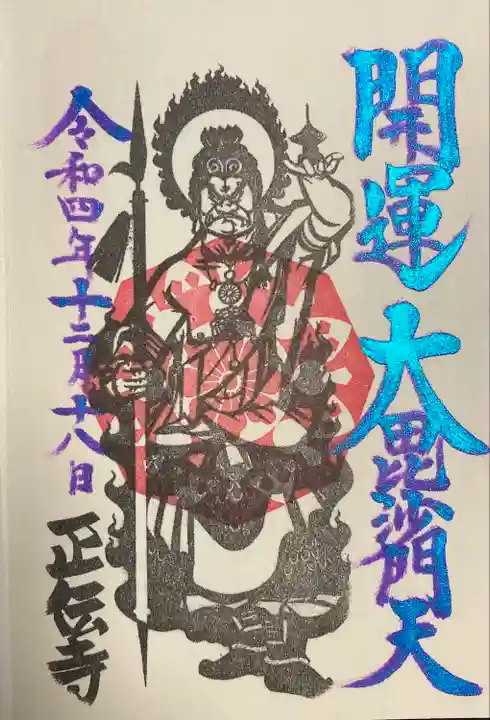 開運大毘沙門天
令和四年十二月十八日
正伝寺